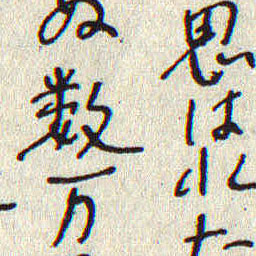 思はれた
ぬ数万